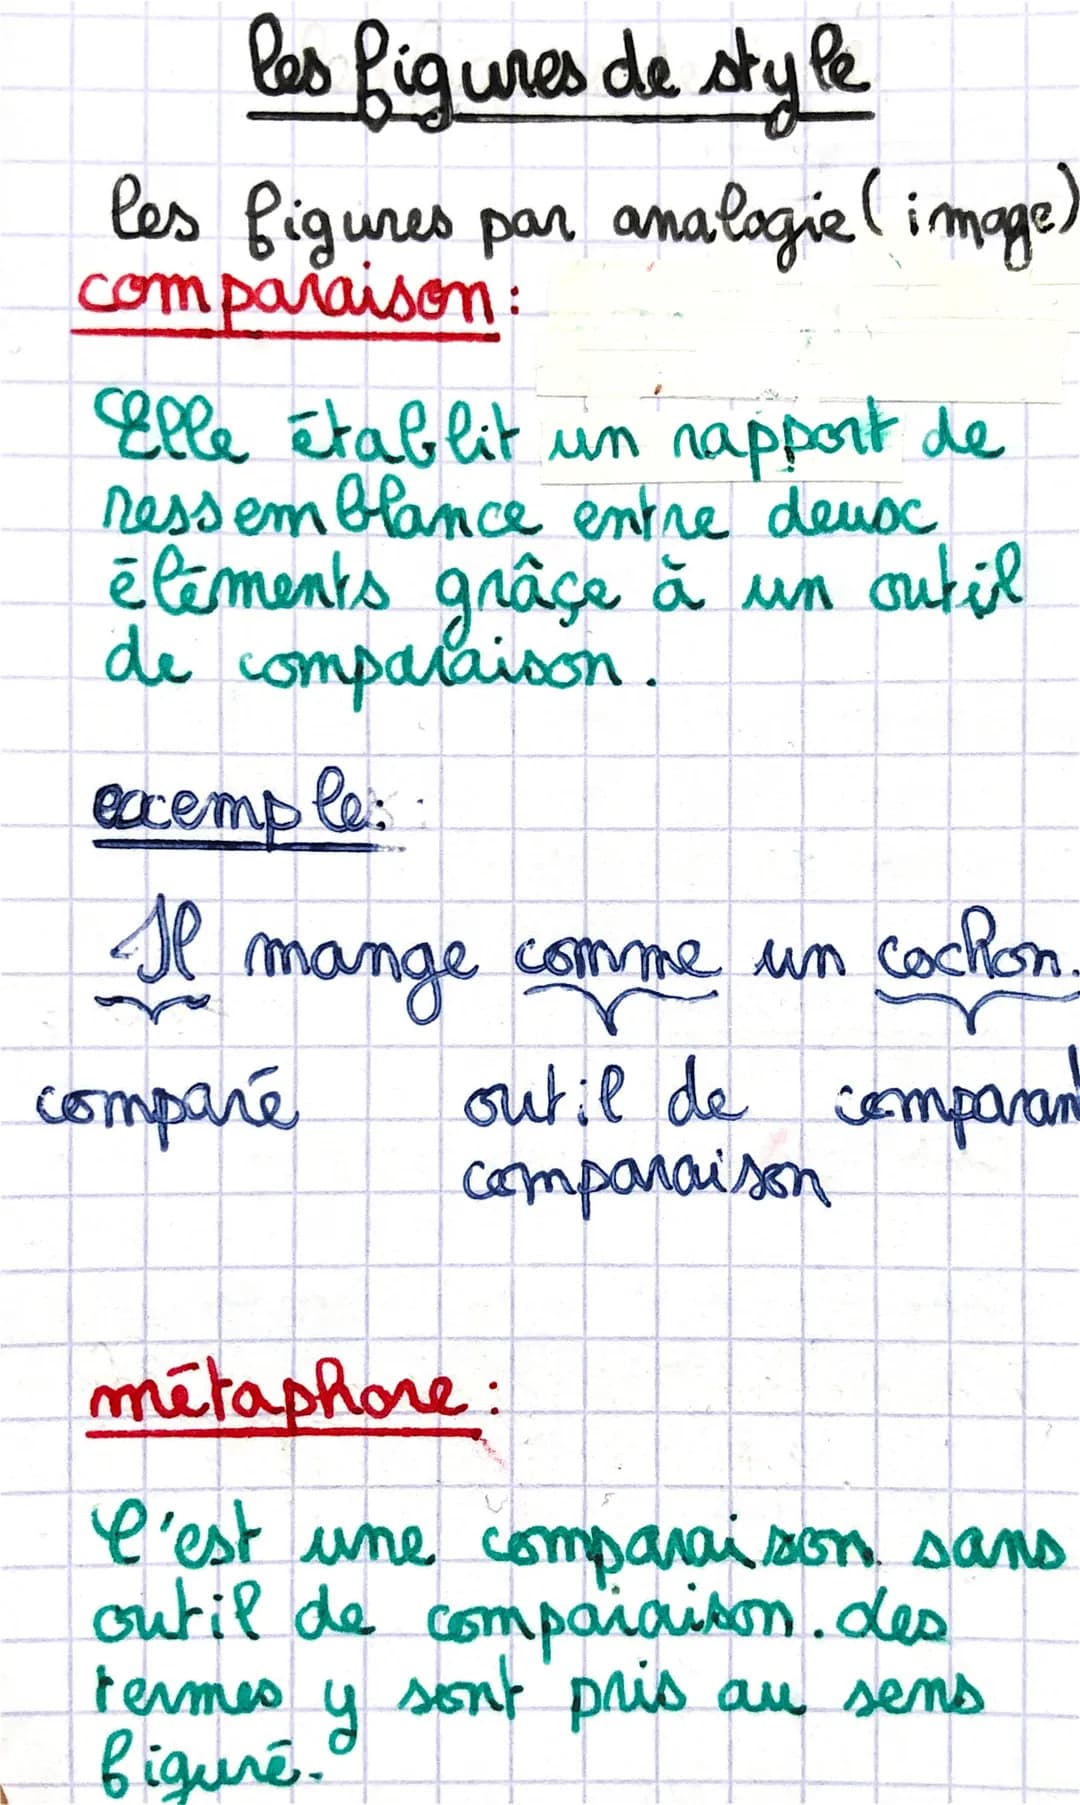 les figures de style
les figures par analogie (image)
comparaison :
Elle établit un rapport de
ressemblance entre deux
éléments grâçe à un outil
de comparaison.
exemple :
Il mange comme un cochon.
comparé outil de comparant
comparaison
métaphore :
C'est une comparaison sans
outil de comparaison. des
termes y sont pris au sens
figuré.